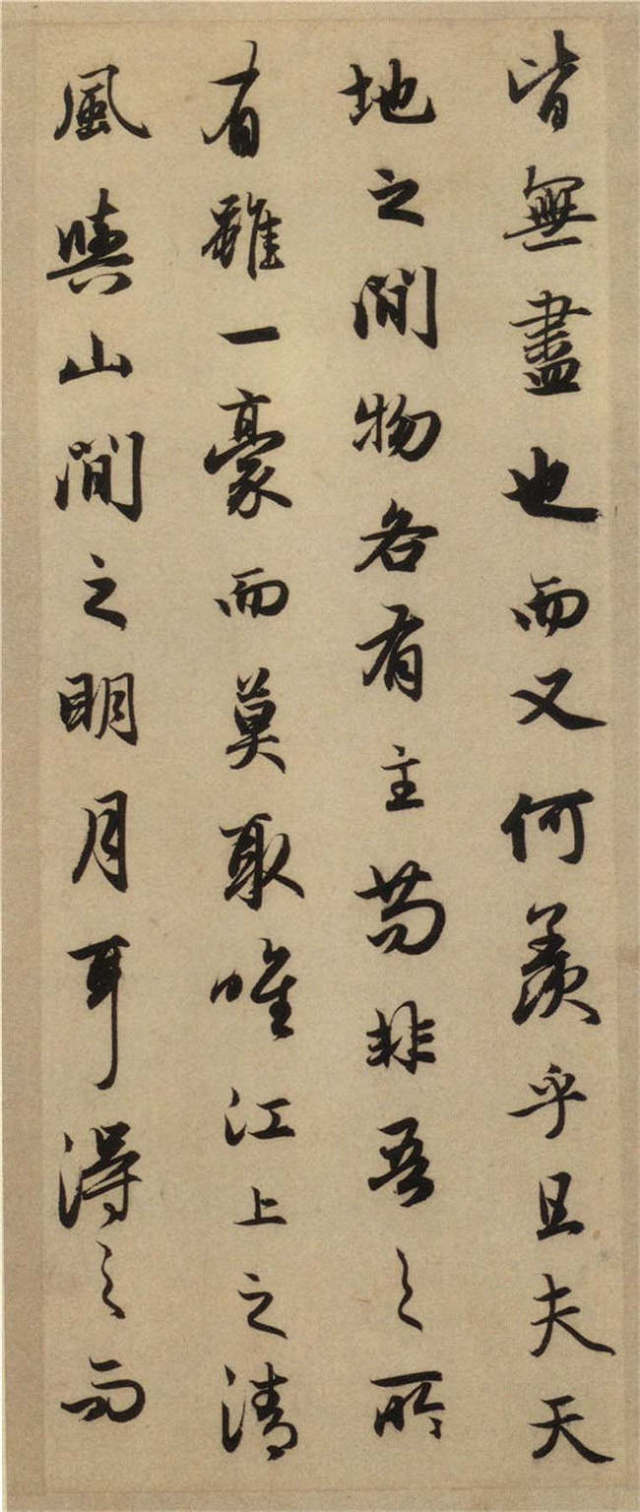 皆無盡也而又何羨乎且夫天
地之間物各有主苟非吾之所
有雖一豪而莫取唯江上之清
風與山間之明月耳得之而